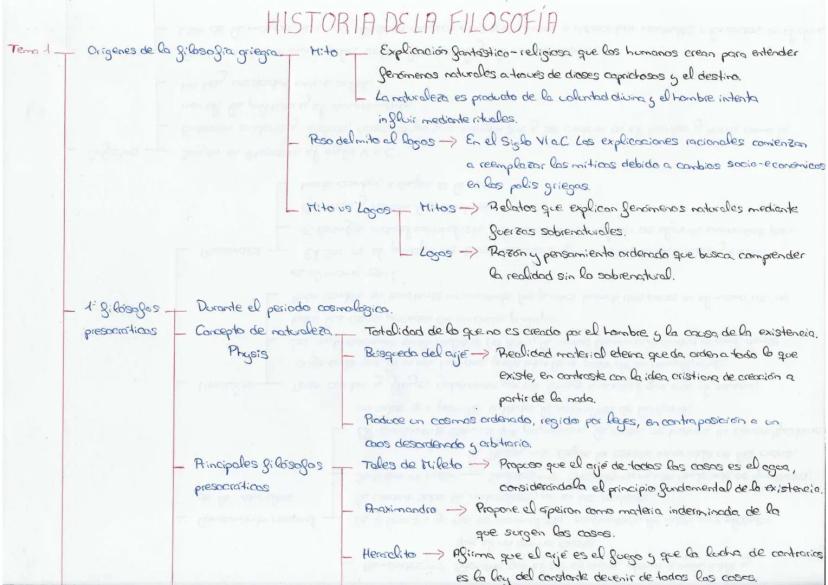 HISTORIA DE LA FILOSOFÍA
Tema 1
Orígenes de la filosofía griega
Mito
Explicación fantástico-religiosa que los humanos crean para entender
fenómenos naturales a través de dioses caprichosos y el destino.
La naturaleza es producto de la voluntad divina y el hombre intenta
influir mediante rituales.
Paso del mito al logos → En el Siglo VI a.C Las explicaciones racionales comienzan
a reemplazar las míticas debido a cambios socio-económicos
en las polis griegas.
Mito vs Logos
Mitos → Relatos que explican fenómenos naturales mediante
fuerzas sobrenaturales.
Logos → Razón y pensamiento ordenado que busca comprender
la realidad sin lo sobrenatural.
1º filósofos
presocráticos
Durante el periodo cosmológico.
Concepto de naturaleza
Physis
Totalidad de lo que no es creado por el hombre y la causa de la existencia.
Búsqueda del arjé → Realidad material eterna que da orden a todo lo que
existe, en contraste con la idea cristiana de creación a
partir de la nada.
Produce un cosmos ordenado, regido por leyes, en contraposición a un
caos desordenado y arbitrario.
Principales filósofos
presocráticos
Tales de Mileto → Propuso que el arjé de todas las cosas es el agua,
considerándola el principio fundamental de la existencia.
Anaximandro → Propone el apeiron como materia indeterminada de la
que surgen las cosas.
Heraclito → Afirma que el arjé es el fuego y que la lucha de contrarios
es la ley del constante devenir de todas las cosas.